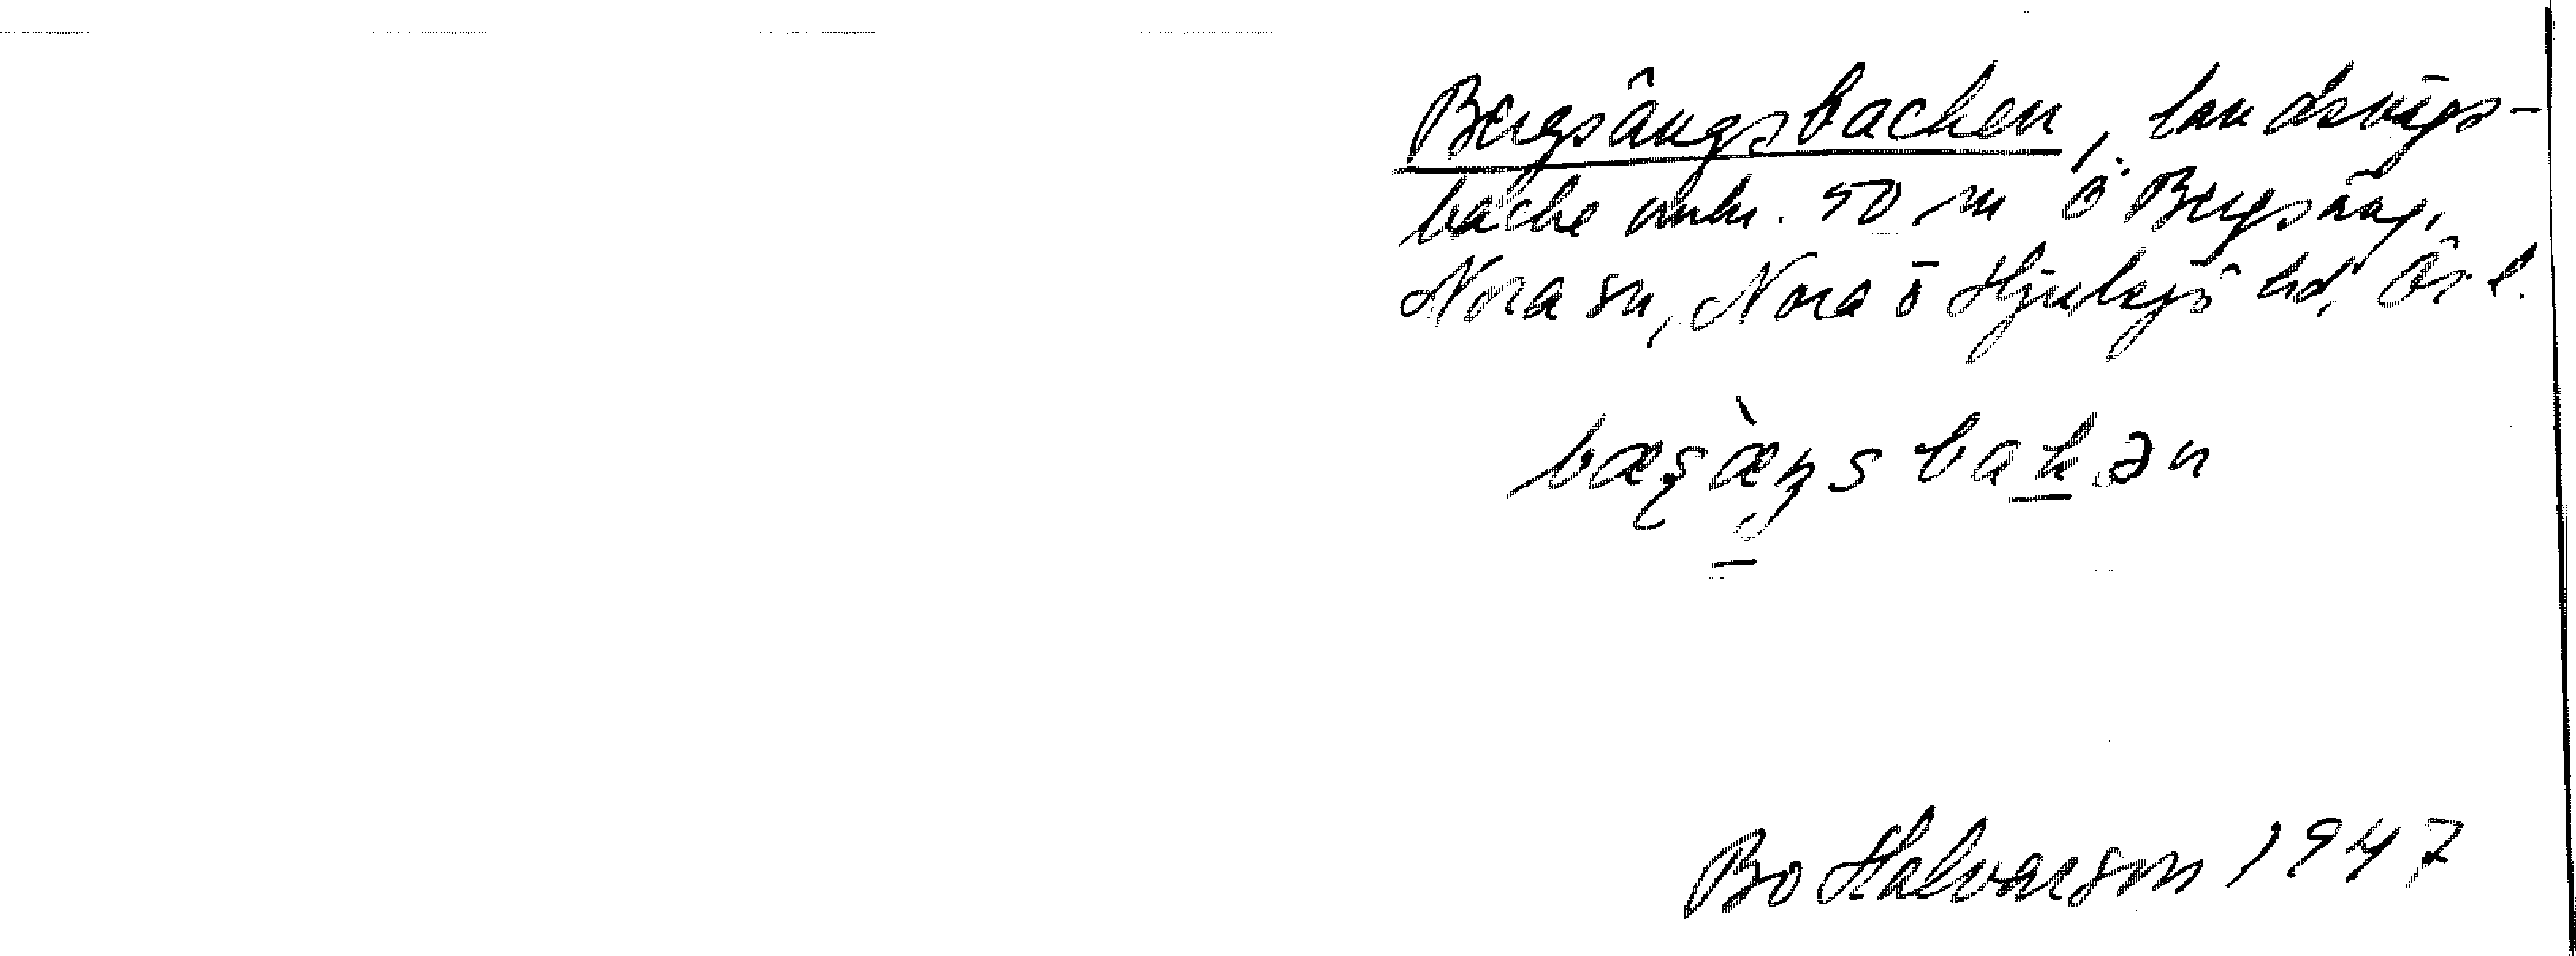 Bergsängsbacken, landsvägs-
backe omkr. 50 m Ö Bergsäng.
Nora sn, Nora o Hjulsjö hd, Ör. l.
bæʂæŋsbakən
Bo Halvarson 1947